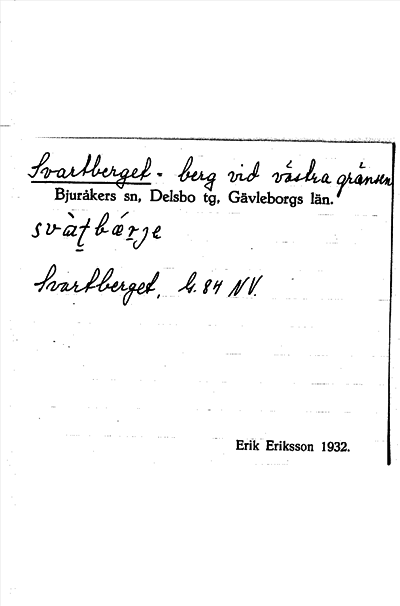 Svartberget - berg vid västra gränsen
Bjuråkers sn, Delsbo tg, Gävleborgs län.
svàt̠bǽr̠je
Svartberget, G. 84 NV.
Erik Eriksson 1932.